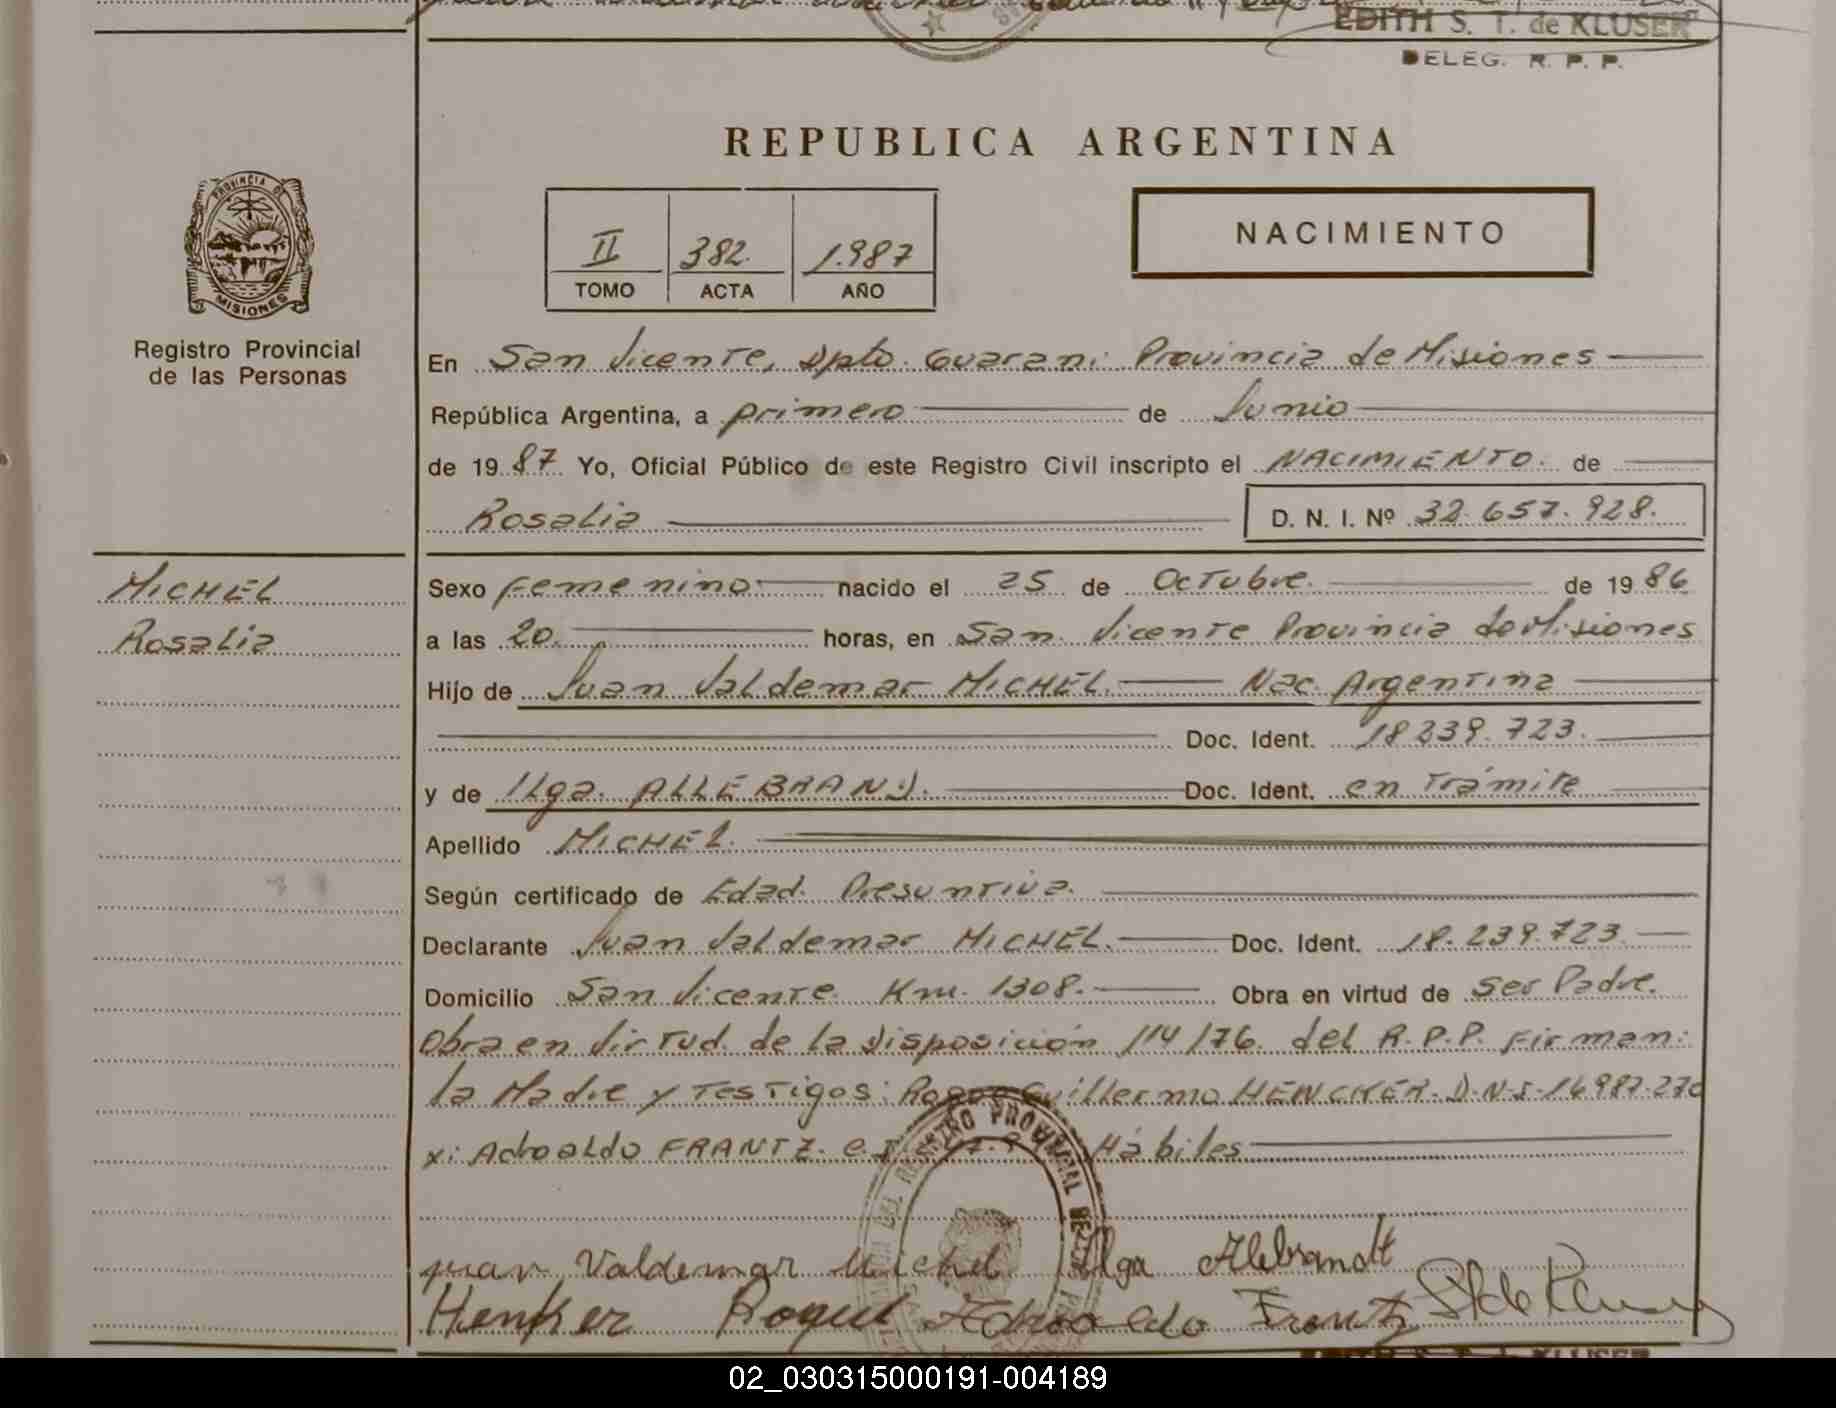 EDITH S. T. de KLUSER
DELEG. R. P. P.
REPUBLICA ARGENTINA
PROVINCIA DE
MISIONES
Registro Provincial
de las Personas
II 382. 1.987
TOMO ACTA AÑO
NACIMIENTO
En San Vicente, Dpto. Guarani Provincia de Misiones
República Argentina, a primero de Junio
de 1987 Yo, Oficial Público de este Registro Civil inscripto el NACIMIENTO. de
Rosalia D. N. I. Nº 32.657.928.
MICHEL
Rosalia
Sexo Femenino nacido el 25 de Octubre. de 1986
a las 20. horas, en San Vicente Provincia de Misiones
Hijo de Juan Valdemar MICHEL. Nac. Argentina
Doc. Ident. 18 239.723.
y de Ilga. ALLEBRAND. Doc. Ident. en Trámite
Apellido MICHEL.
Según certificado de Edad. Presuntiva.
Declarante Juan Valdemar MICHEL. Doc. Ident. 18.239.723.
Domicilio San Vicente. Km. 1308. Obra en virtud de Ser Padre.
Obra en Virtud. de la Disposición 114/76. del R.P.P. Firman:
la Madre y Testigos: Roque Guillermo HENCKER. D.N.I. 16987.270
x: Adroaldo FRANTZ. Hábiles
REGISTRO PROVINCIAL DE
juan Valdemar Michel Ilga Alebrandt
Henker Roque Adroaldo Frantz
EDITH S. T. de KLUSER
02_030315000191-004189